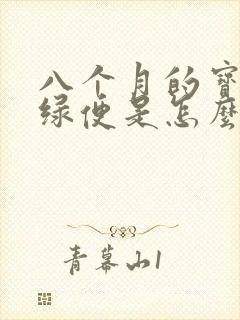 八个月的寶
绿便是怎麼
青幕山1